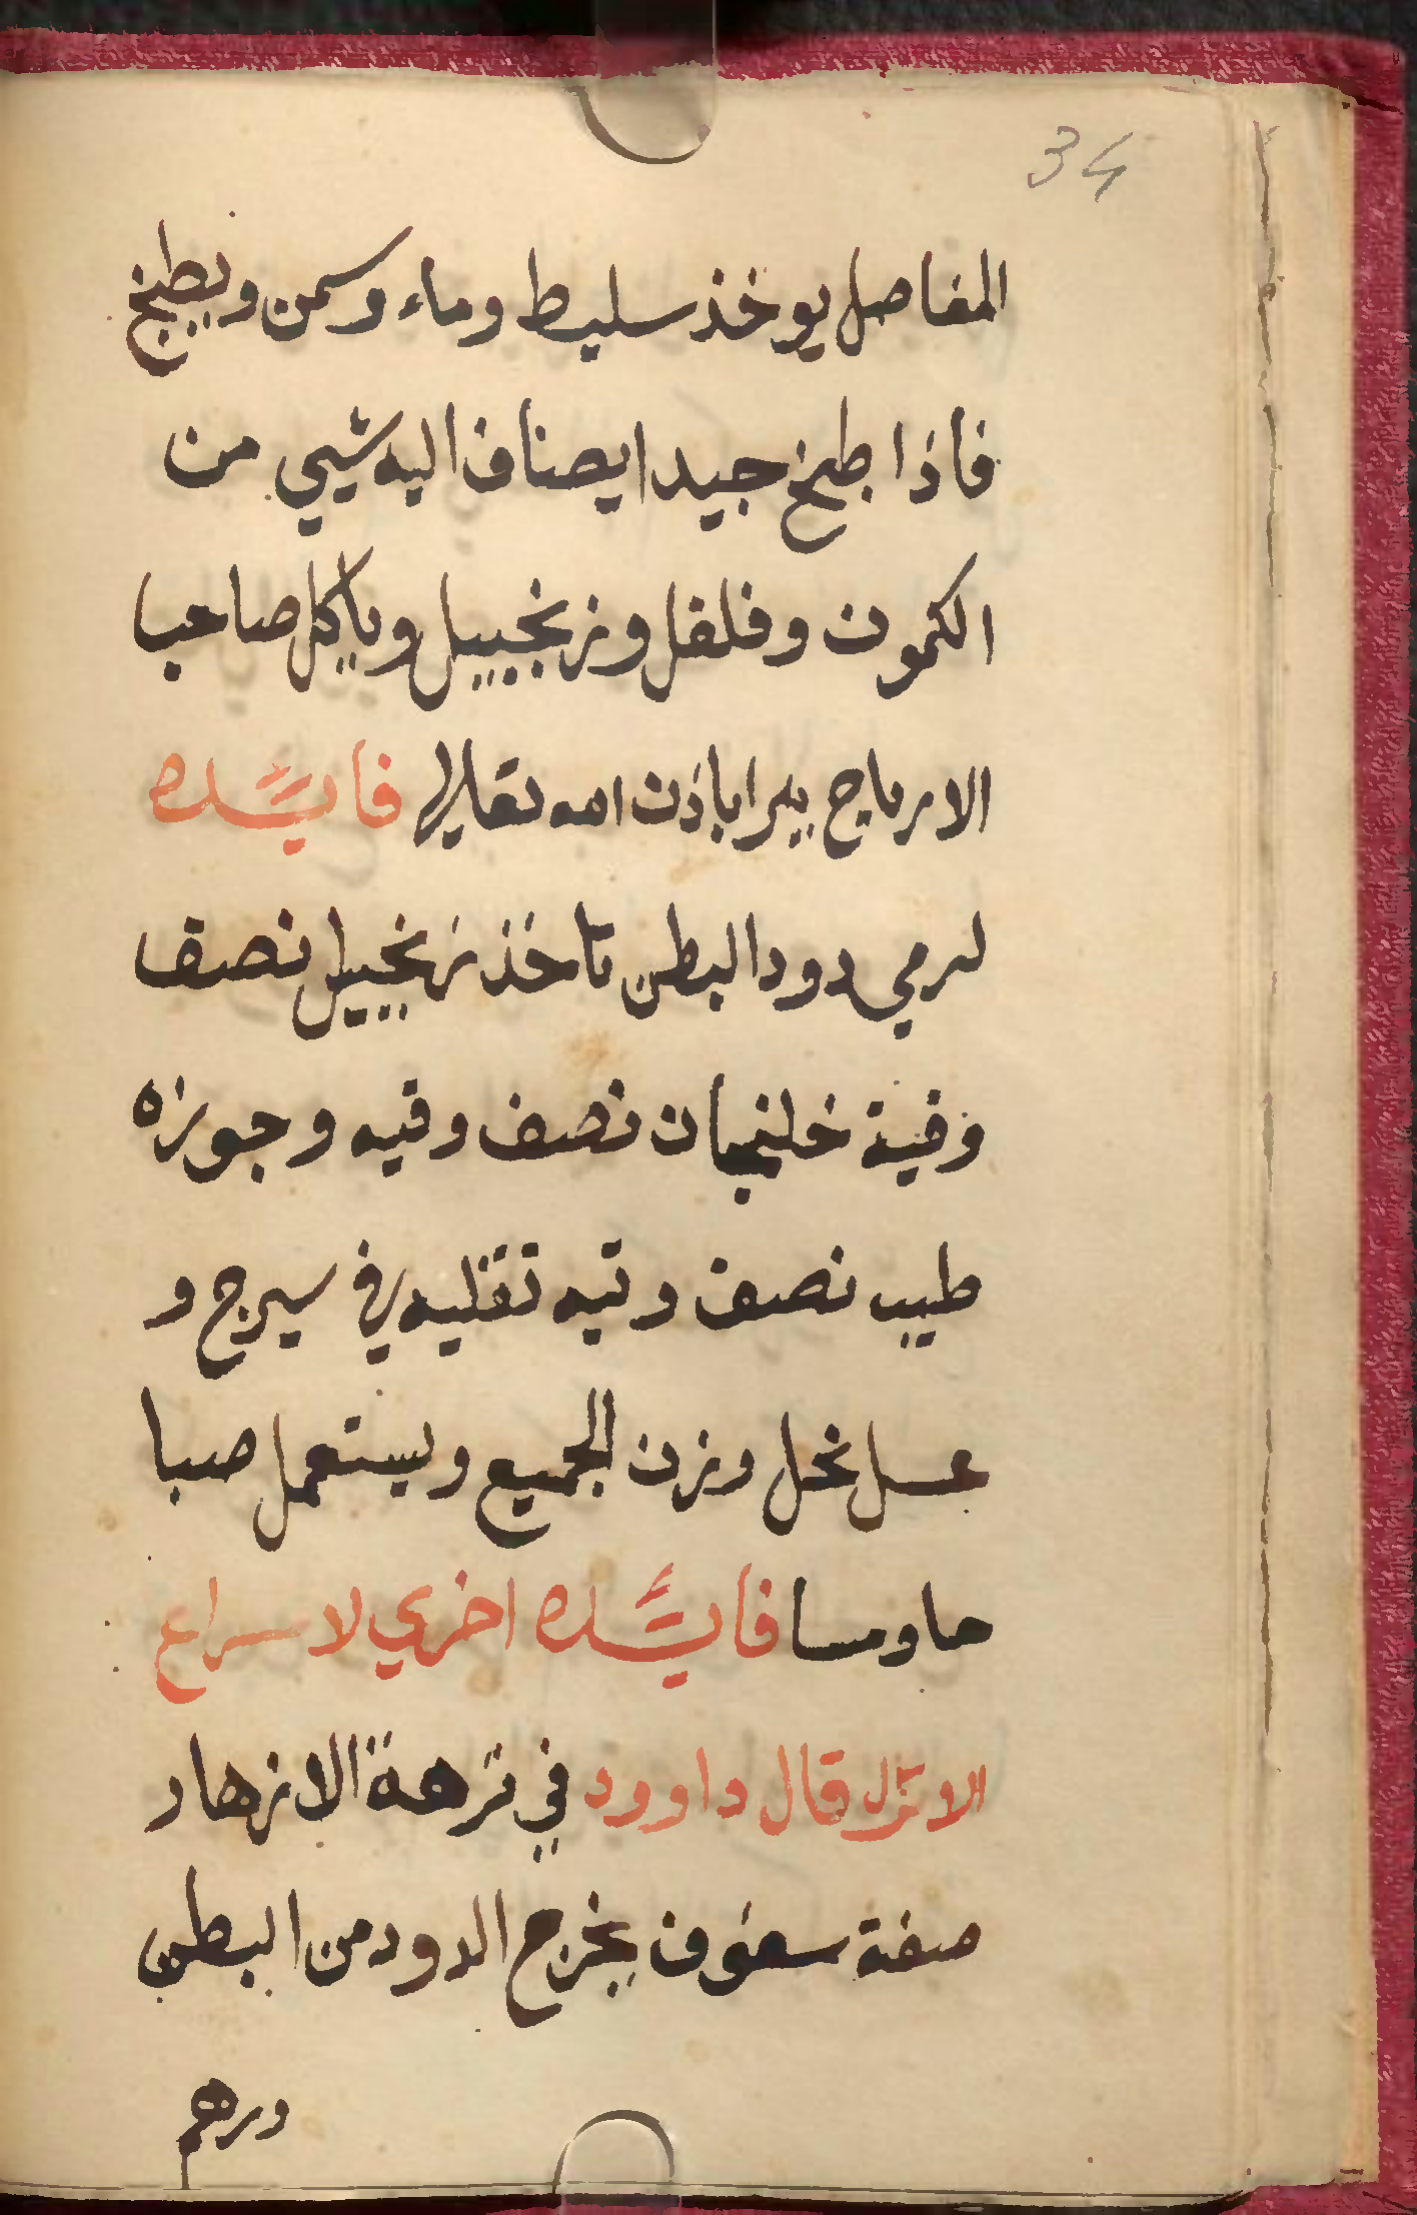 34
المفاصل يوخذ سليط وماء وسمن ويطبخ
فاذا طبخ جيدا يضاف اليه شيي من
الكمون وفلفل وزنجبيل وياكل صاحب
الارياح يبرا باذن الله تعالى فايده
لرمي دود البطن تاخذ زنجبيل نصف
وقية خلنجان نصف وقيه وجوزه
طيب نصف وقيه تقليه في سيرج و
عسل نحل وزن الجميع ويستعمل صبا
حا ومسا فايده اخري لاسراع
الانزال قال داوود في نزهة الازهار
صفة سفوف يخرج الدود من البطن
درهم